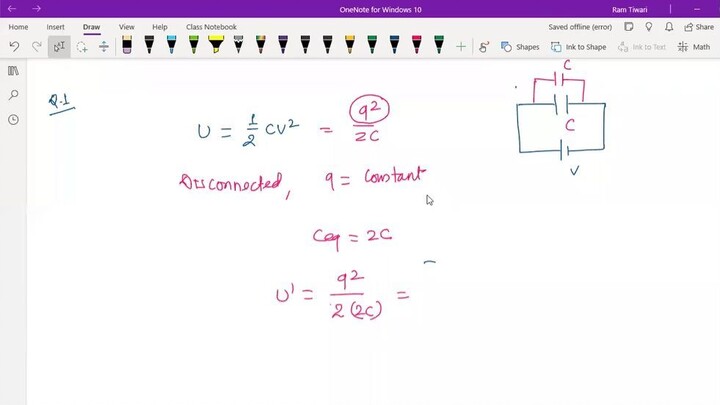 OneNote for Windows 10
Ram Tiwari
Home Insert Draw View Help Class Notebook
Saved offline (error)
Share
Shapes
Ink to Shape
Ink to Text
Math
Q.1
U = 1/2 CV² = q²/2C
Disconnected, q = Constant
Ceq = 2C
U' = q²/2(2C) =
C
C
V